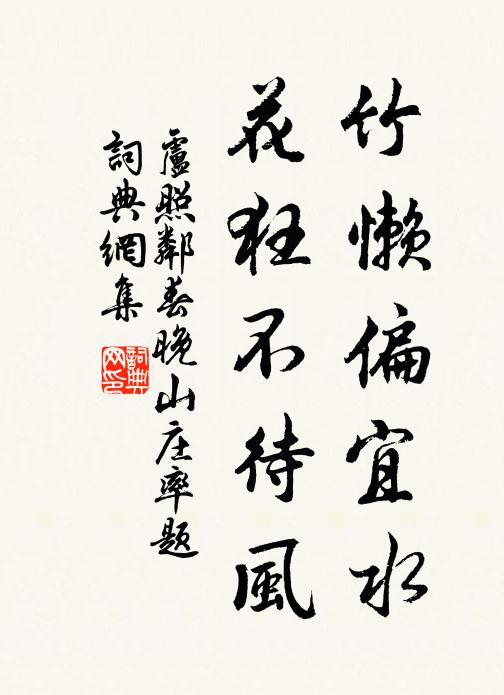 竹懒偏宜水
花狂不待風
盧照鄰春晚山庄率题
詞典網集
詞典网印